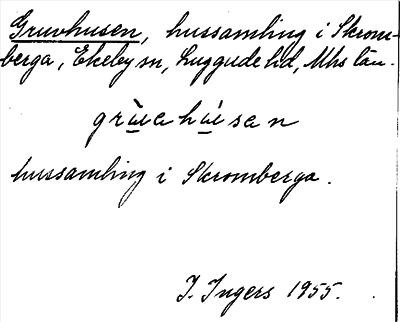 Gruvhusen, hussamling i Skrom-
berga, Ekeby sn, Luggude hd, Mhs län.
hussamling i Skromberga.
I. Ingers 1955.